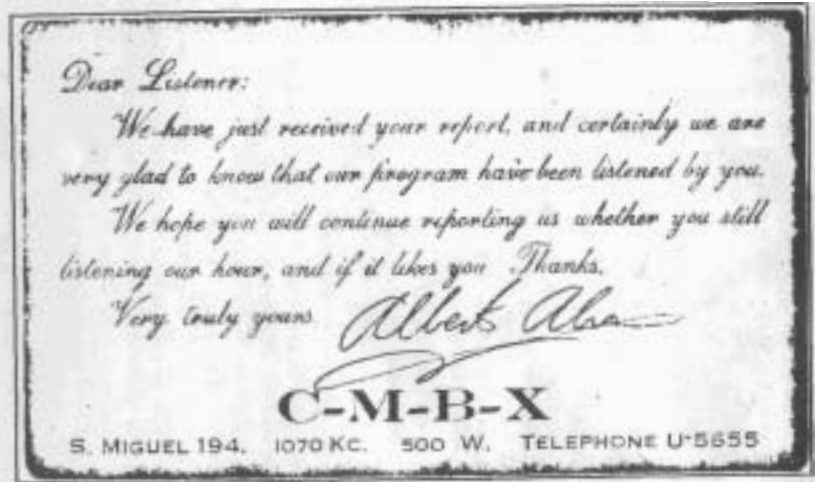 Dear Listener:
We have just received your report, and certainly we are
very glad to know that our program have been listened by you.
We hope you will continue reporting us whether you still
listening our hour, and if it likes you. Thanks.
Very truly yours
Albert
C-M-B-X
S. MIGUEL 194. 1070 KC. 500 W. TELEPHONE U-5655